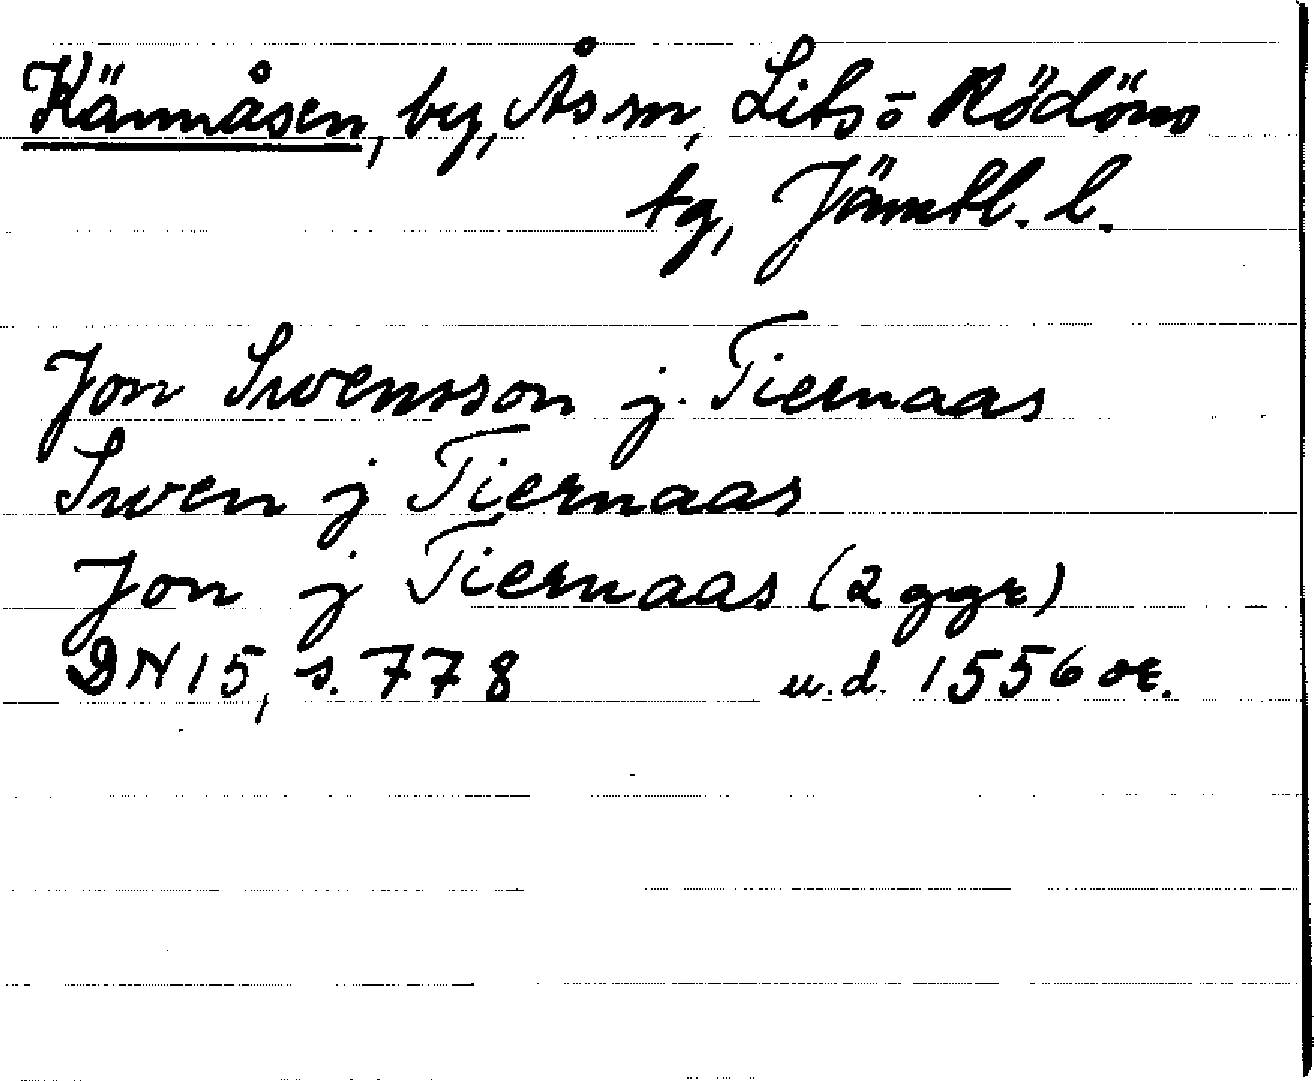 Kännåsen, by, Ås sn, Lits o Rödöns
tg, Jämtl. l.
Jon Swensson j. Tiernaas
Swen j Tiernaas
Jon j Tiernaas (2 ggr)
DN 15, s. 778 u.d. 1556 or.